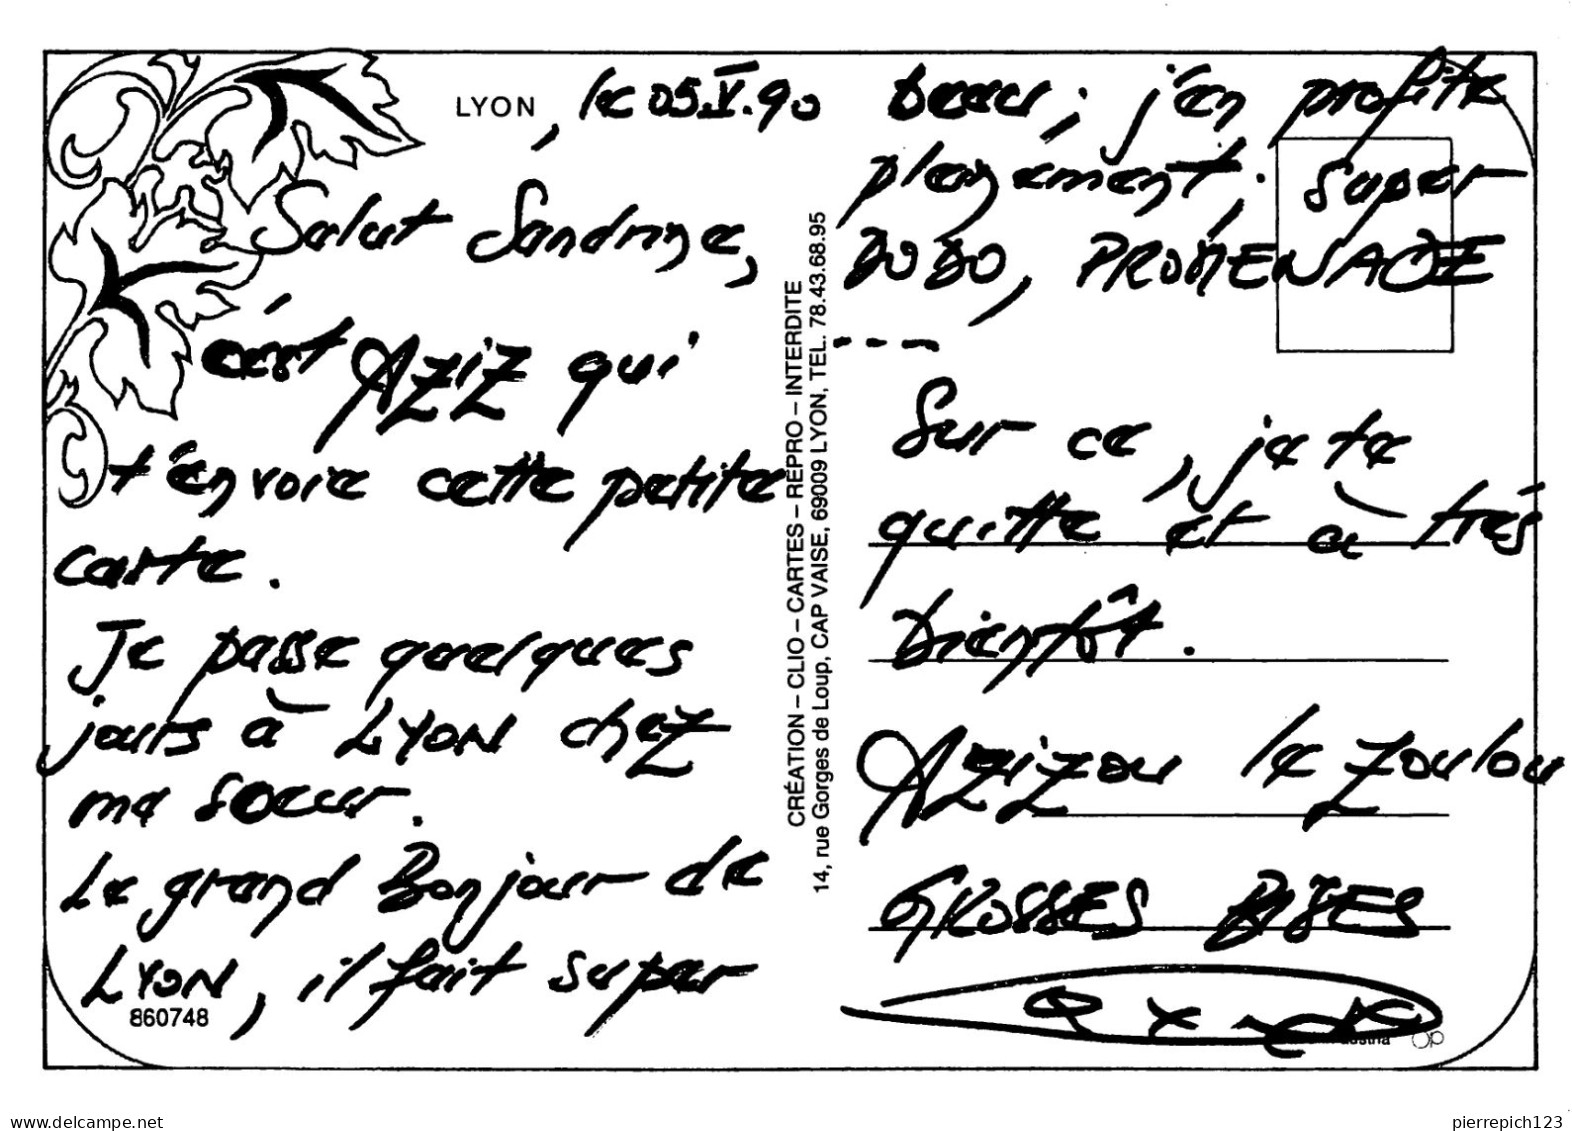 LYON, le 05.V.90
Salut Sandrine,
c'est AZiZ qui
t'envoie cette petite
carte.
Je passe quelques
jours à LYON chez
ma soeur.
Le grand Bonjour de
LYON, il fait super
860748
CRÉATION – CLIO – CARTES – REPRO – INTERDITE
14, rue Gorges de Loup, CAP VAISE, 69009 LYON, TEL. 78.43.68.95
beau; j'en profite
pleinement; super
DODO, PROMENADE
----
Sur ce, je te
quitte et à très
bientôt.
Azizou le Zoulou
GROSSES BISES
www.delcampe.net
pierrepich123